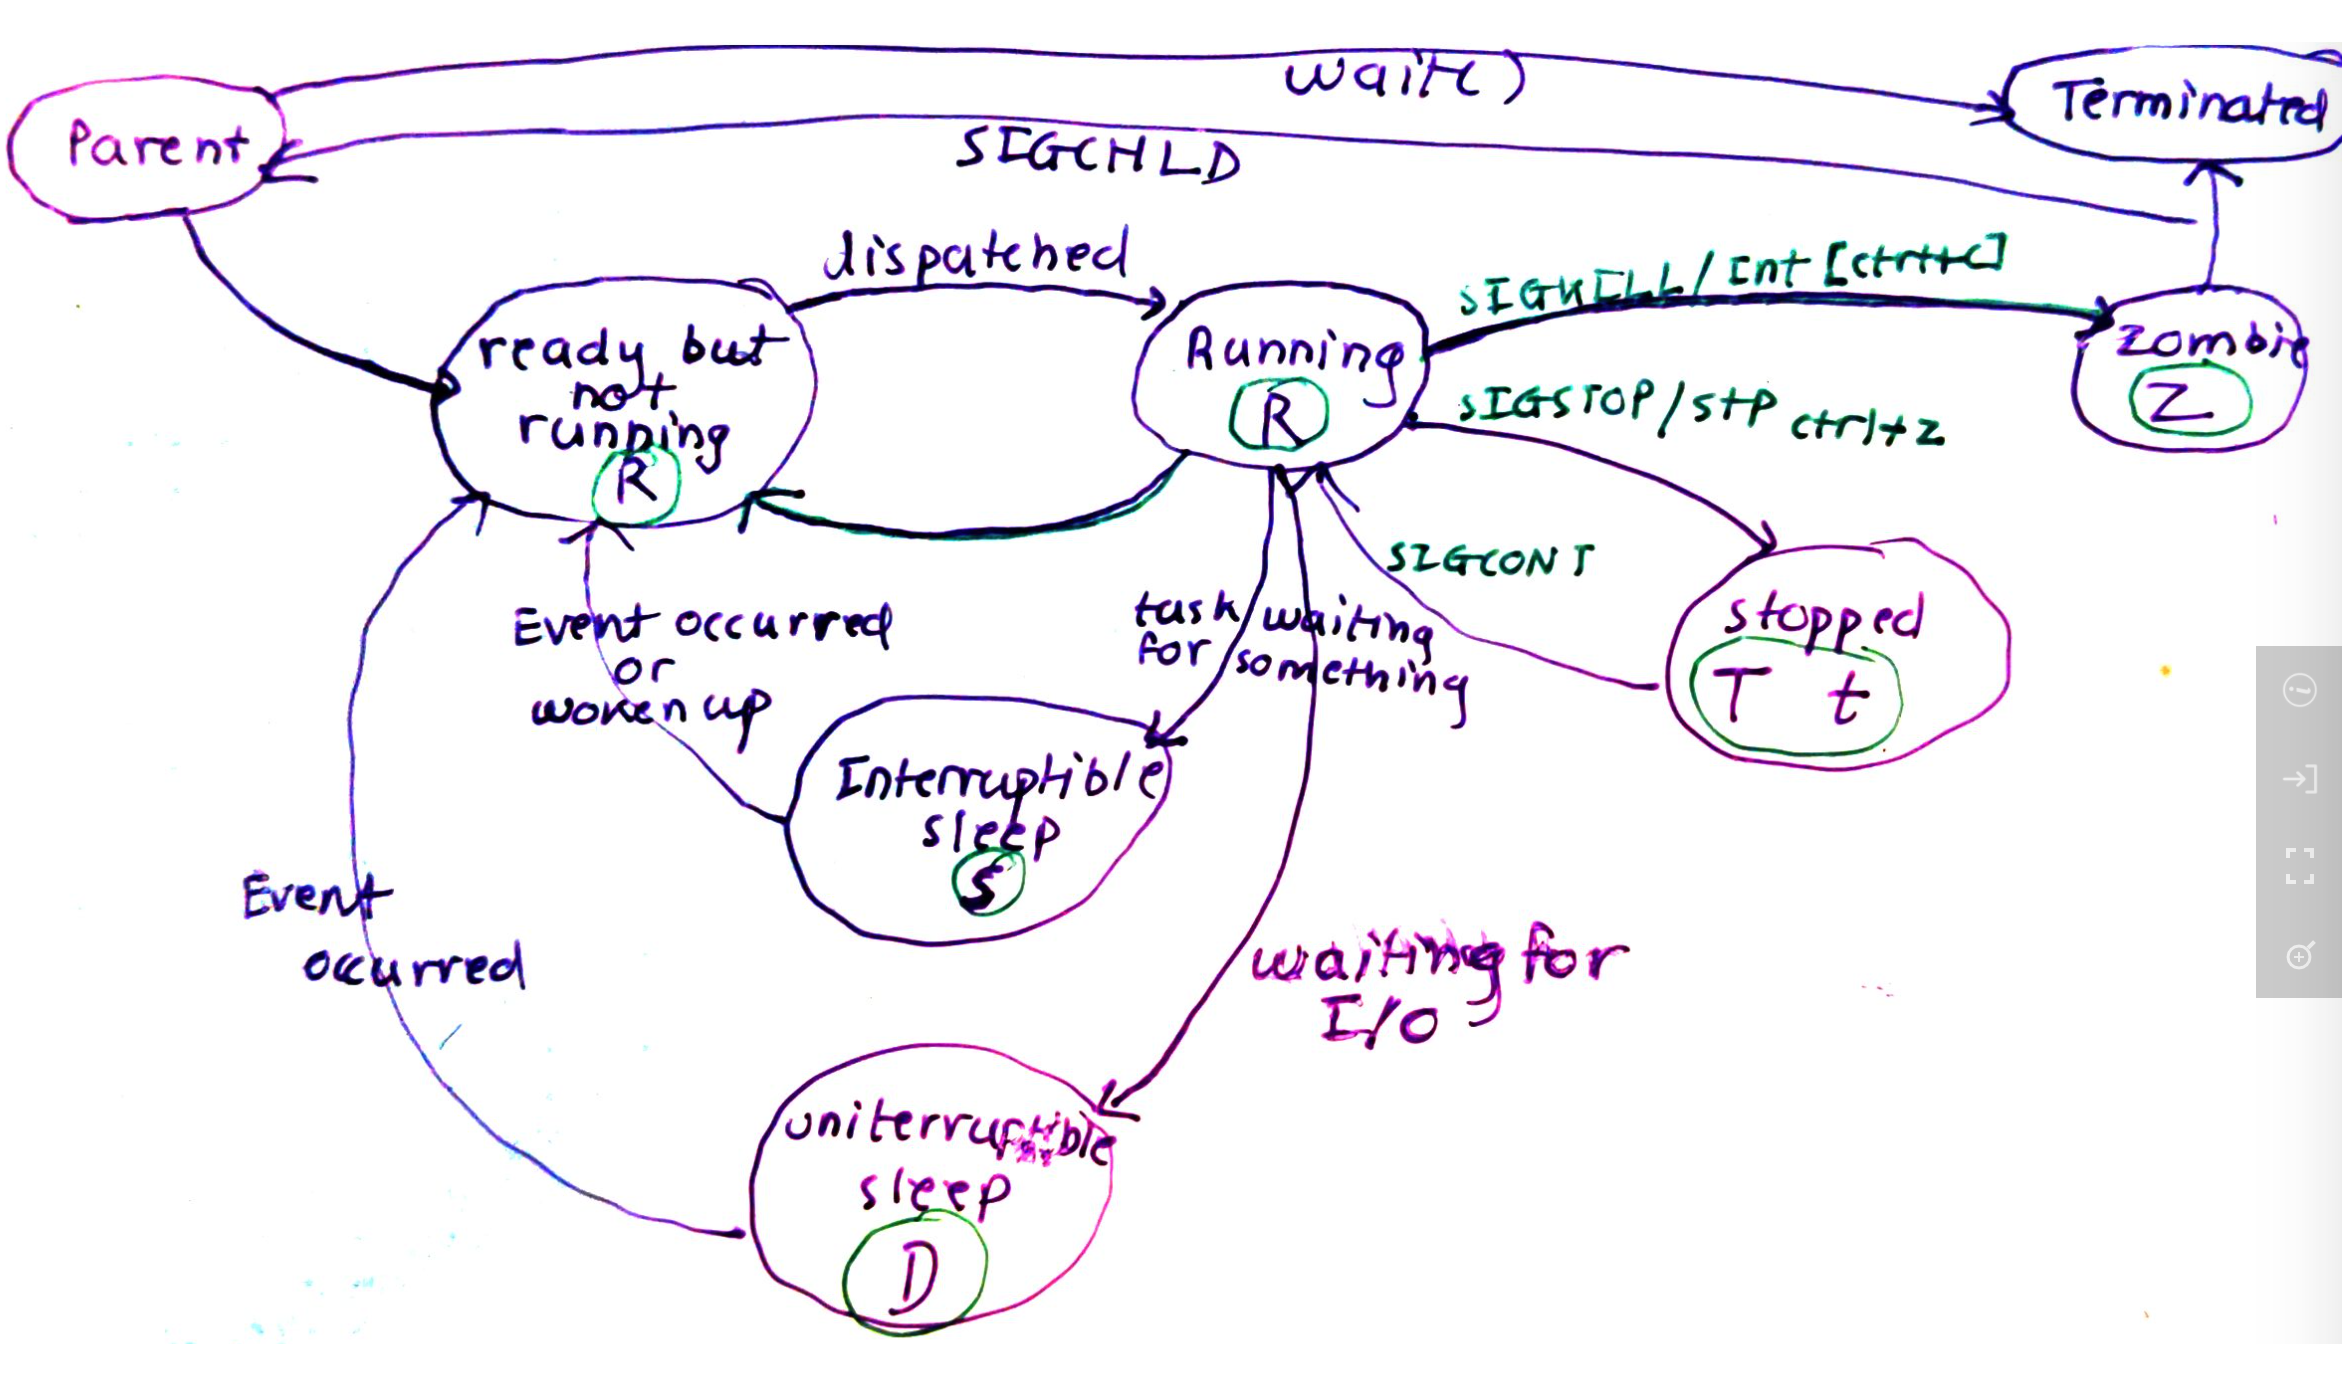 wait()
Parent
Terminated
SIGCHLD
dispatched
SIGKILL/Int [ctrl+c]
ready but
not
running
R
Running
R
zombie
Z
SIGSTOP/stp ctrl+z
SIGCONT
Event occurred
or
woken up
task waiting
for something
stopped
T t
Interruptible
sleep
S
Event
occurred
waiting for
I/O
uniterruptible
sleep
D